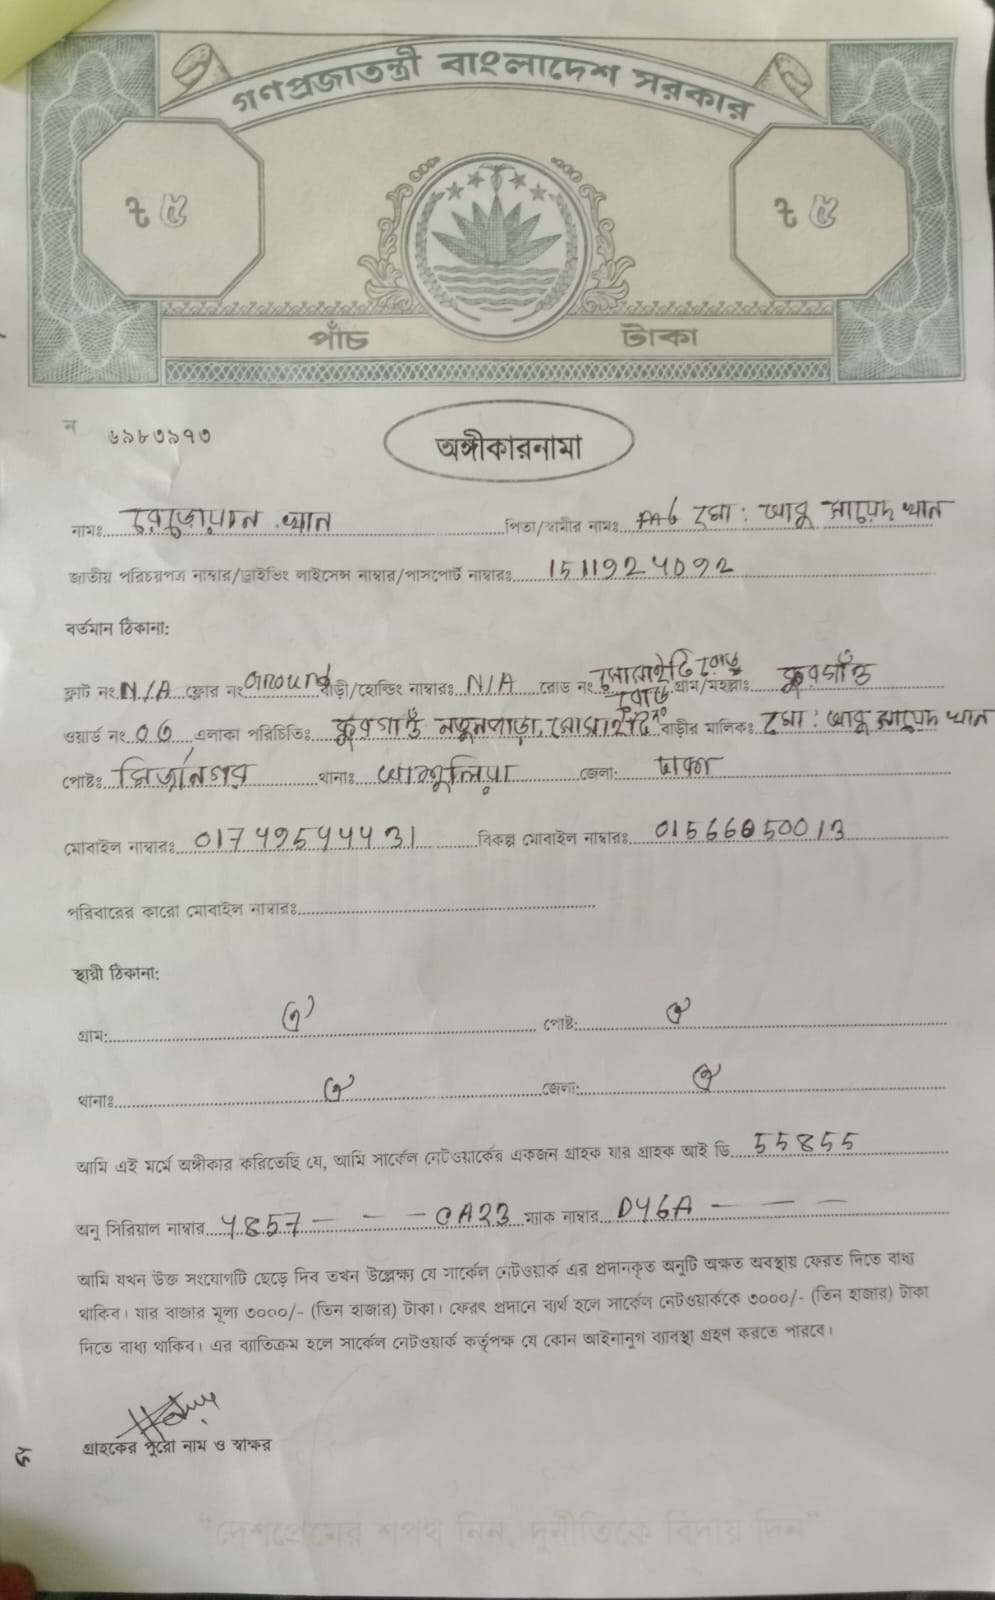 গণপ্রজাতন্ত্রী বাংলাদেশ সরকার
৳ ৫ ৳ ৫
পাঁচ টাকা
ন ৬৯৮৩৯৭৩
অঙ্গীকারনামা
নামঃ রেজোয়ান খান পিতা/স্বামীর নামঃ মোঃ আবু সায়েদ খান
জাতীয় পরিচয়পত্র নাম্বার/ড্রাইভিং লাইসেন্স নাম্বার/পাসপোর্ট নাম্বারঃ 1511924092
বর্তমান ঠিকানা:
ফ্লাট নং N/A ফ্লোর নং Ground বাড়ী/হোল্ডিং নাম্বারঃ N/A রোড নং সোসাইটি রোড গ্রাম/মহল্লাঃ কুরগাঁও
ওয়ার্ড নং 06 এলাকা পরিচিতিঃ কুরগাঁও নতুনপাড়া, সোসাইটি রোড বাড়ীর মালিকঃ মোঃ আবু সায়েদ খান
পোষ্টঃ মির্জানগর থানাঃ আশুলিয়া জেলা: ঢাকা
মোবাইল নাম্বারঃ 01749544431 বিকল্প মোবাইল নাম্বারঃ 01566050013
পরিবারের কারো মোবাইল নাম্বারঃ
স্থায়ী ঠিকানা:
গ্রাম: ঐ পোষ্ট: ঐ
থানাঃ ঐ জেলা: ঐ
আমি এই মর্মে অঙ্গীকার করিতেছি যে, আমি সার্কেল নেটওয়ার্কের একজন গ্রাহক যার গ্রাহক আই ডি 55855
অনু সিরিয়াল নাম্বার 4857 - - - CA23 ম্যাক নাম্বার D46A - - -
আমি যখন উক্ত সংযোগটি ছেড়ে দিব তখন উল্লেক্ষ্য যে সার্কেল নেটওয়ার্ক এর প্রদানকৃত অনুটি অক্ষত অবস্থায় ফেরত দিতে বাধ্য
থাকিব। যার বাজার মূল্য ৩০০০/- (তিন হাজার) টাকা। ফেরৎ প্রদানে ব্যর্থ হলে সার্কেল নেটওয়ার্ককে ৩০০০/- (তিন হাজার) টাকা
দিতে বাধ্য থাকিব। এর ব্যাতিক্রম হলে সার্কেল নেটওয়ার্ক কর্তৃপক্ষ যে কোন আইনানুগ ব্যাবস্থা গ্রহণ করতে পারবে।
গ্রাহকের পুরো নাম ও স্বাক্ষর
"দেশপ্রেমের শপথ নিন, দুর্নীতিকে বিদায় দিন"